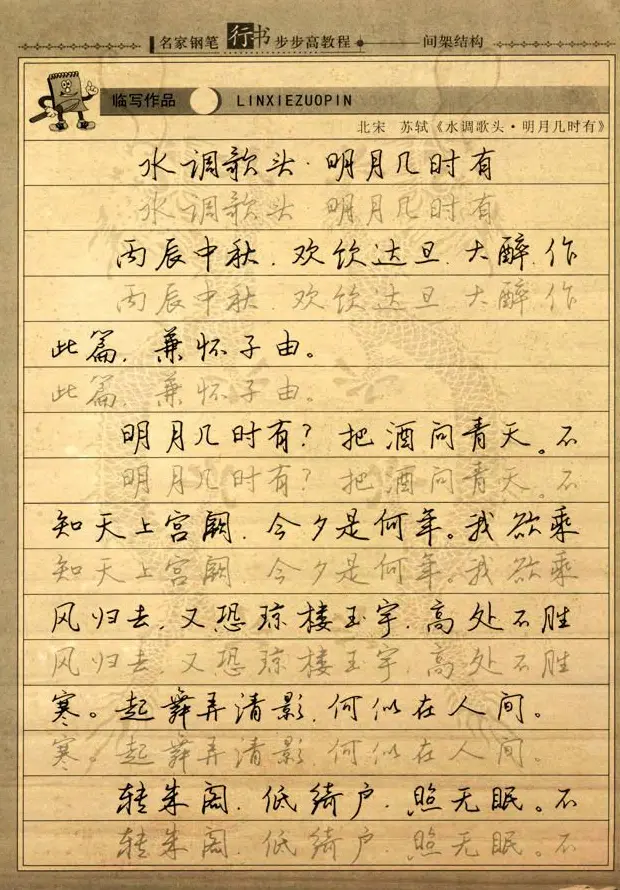 名家钢笔行书步步高教程 间架结构
临写作品 LINXIEZUOPIN
北宋 苏轼《水调歌头·明月几时有》
水调歌头·明月几时有
水调歌头·明月几时有
丙辰中秋，欢饮达旦，大醉，作
丙辰中秋，欢饮达旦，大醉，作
此篇，兼怀子由。
此篇，兼怀子由。
明月几时有？把酒问青天。不
明月几时有？把酒问青天。不
知天上宫阙，今夕是何年。我欲乘
知天上宫阙，今夕是何年。我欲乘
风归去，又恐琼楼玉宇，高处不胜
风归去，又恐琼楼玉宇，高处不胜
寒。起舞弄清影，何似在人间。
寒。起舞弄清影，何似在人间。
转朱阁，低绮户，照无眠。不
转朱阁，低绮户，照无眠。不